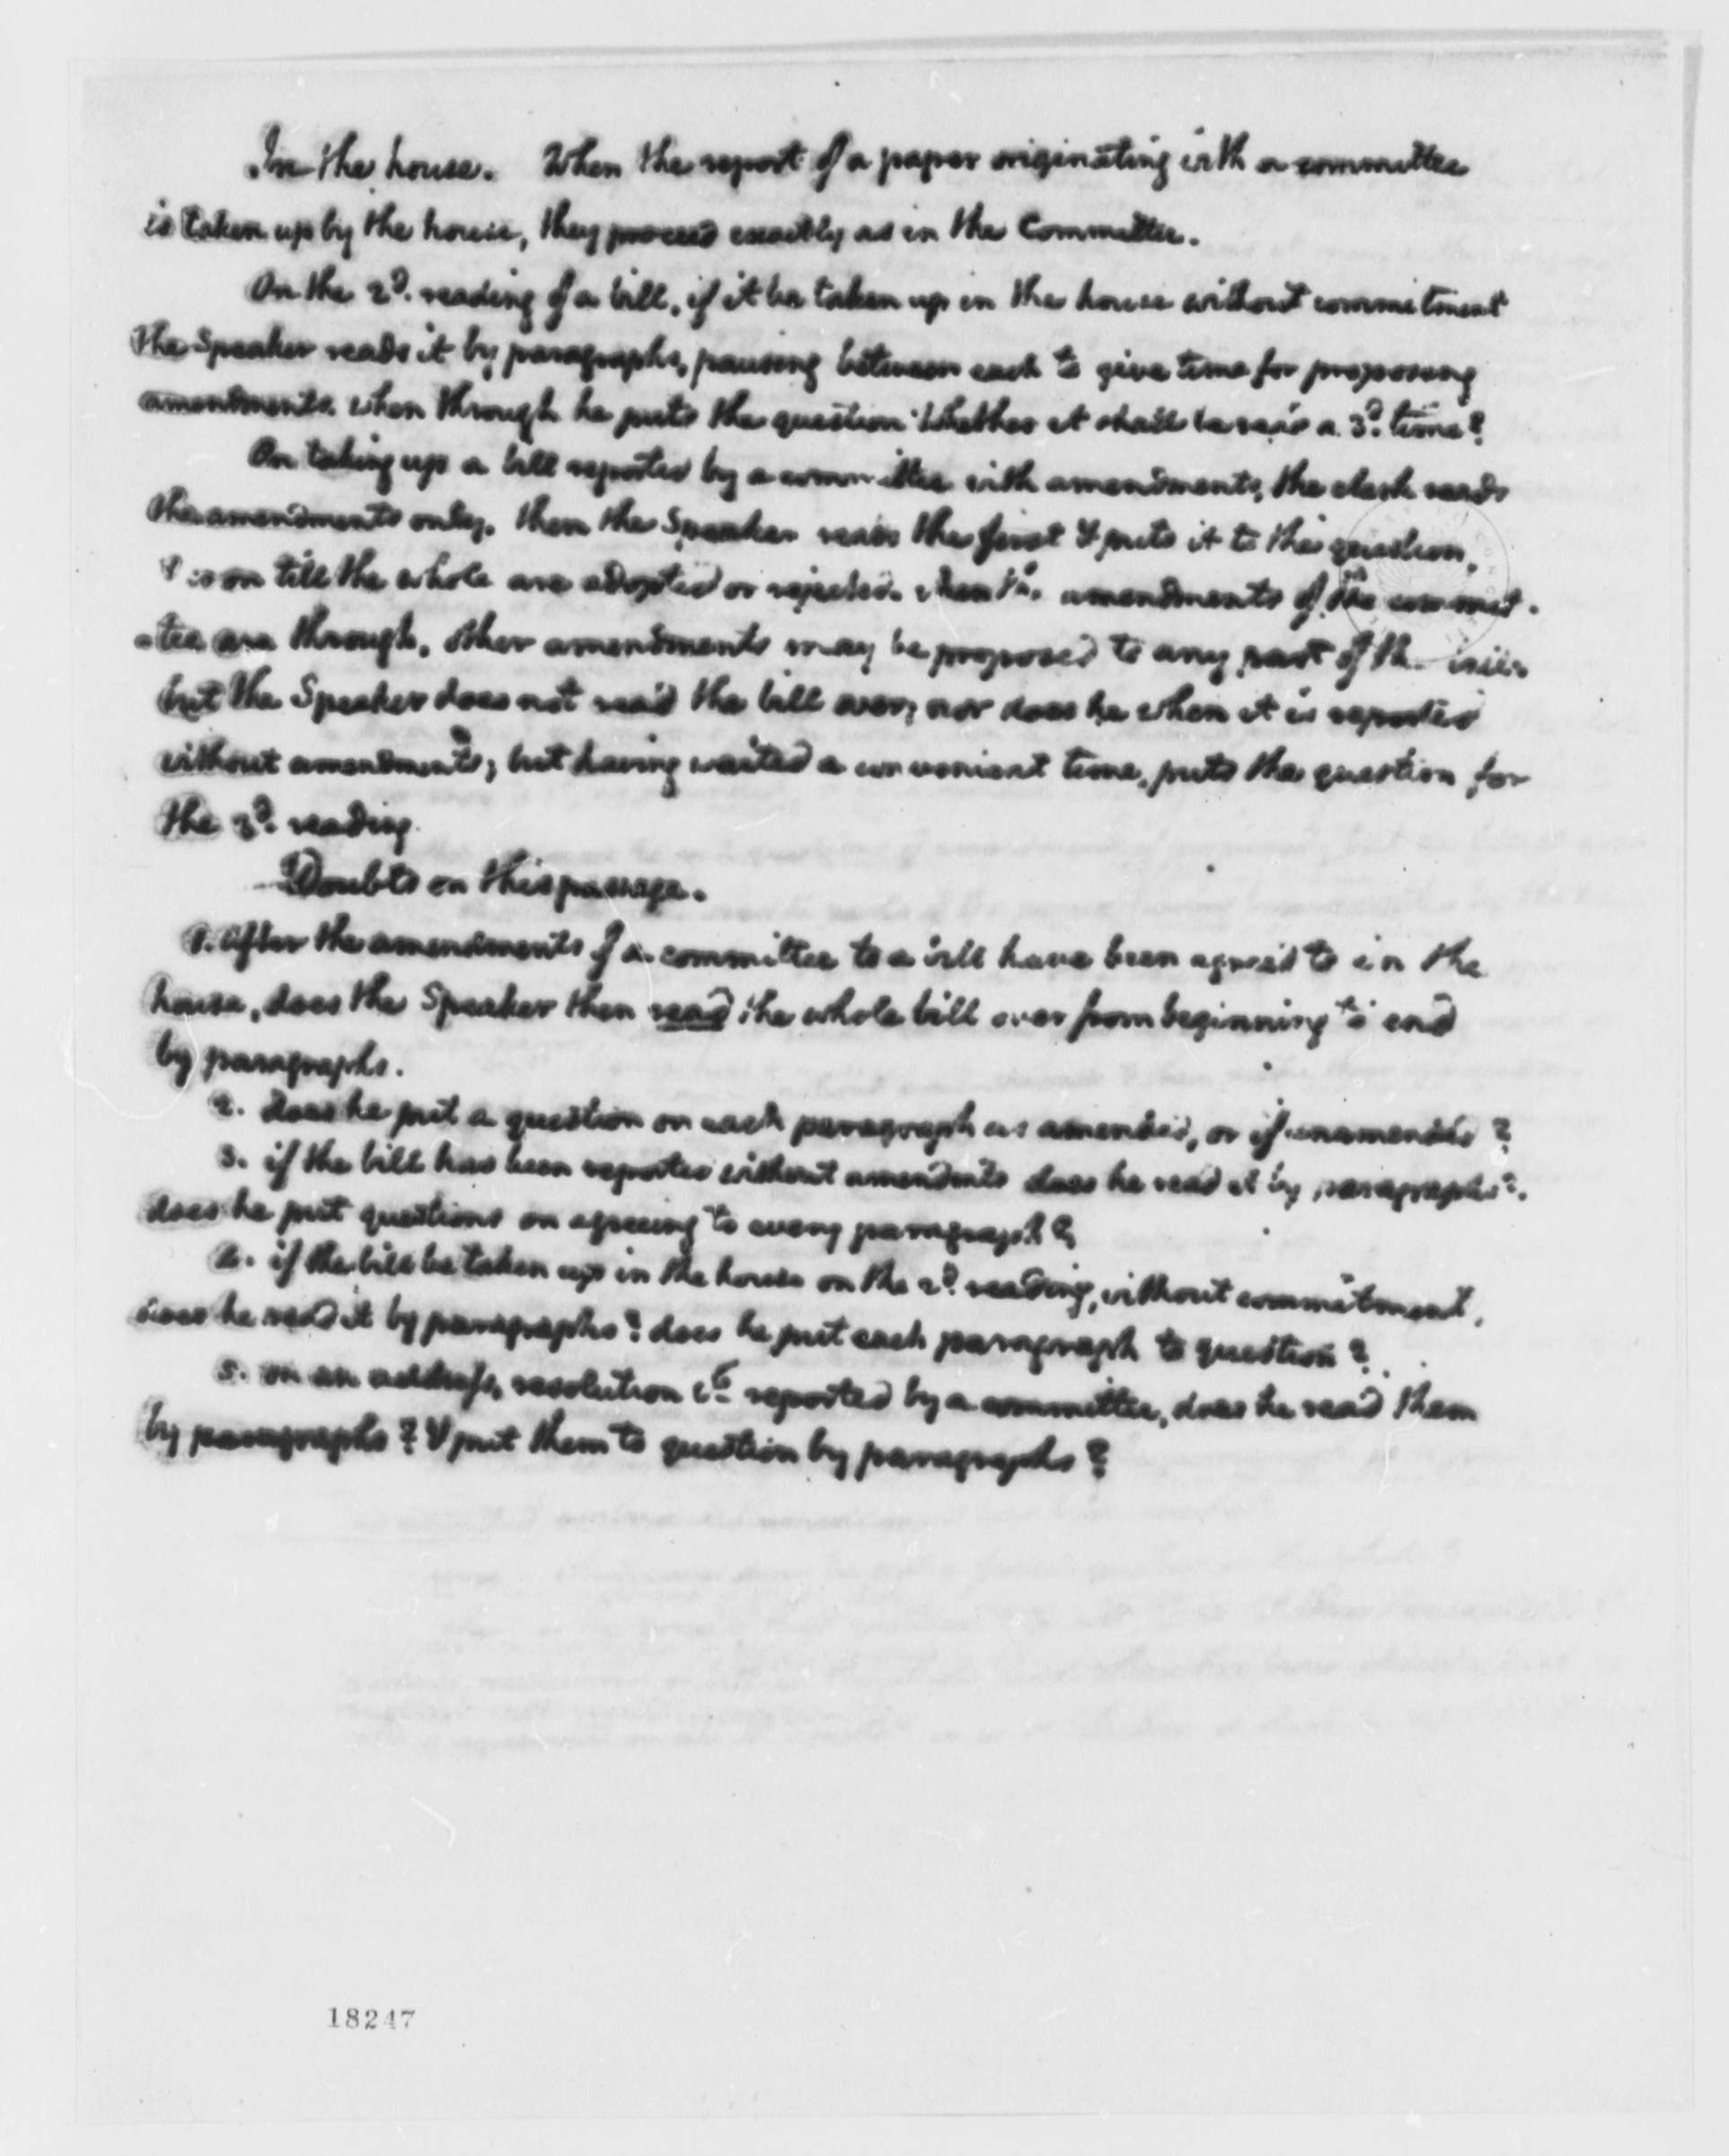 In the house. When the report of a paper originating with a committee
is taken up by the house, they proceed exactly as in the Committee.
On the 2d. reading of a bill, if it be taken up in the house without commitment
the Speaker reads it by paragraphs, pausing between each to give time for proposing
amendments. when through he puts the question whether it shall be read a 3d. time?
On taking up a bill reported by a committee with amendments, the clerk reads
the amendments only. then the Speaker reads the first & puts it to the question,
& so on till the whole are adopted or rejected. when the amendments of the commit-
-tee are through, other amendments may be proposed to any part of the
but the Speaker does not read the bill over, nor does he when it is reported
without amendments; but having waited a convenient time, puts the question for
the 3d. reading.
Doubts on this passage.
1. After the amendments of a committee to a bill have been agreed to in the
house, does the Speaker then read the whole bill over from beginning to end
by paragraphs.
2. does he put a question on each paragraph as amended, or if unamended?
3. if the bill has been reported without amendmts does he read it by paragraphs?
does he put questions on agreeing to every paragraph?
4. if the bill be taken up in the house on the 2d. reading, without commitment,
does he read it by paragraphs? does he put each paragraph to question?
5. on an address, resolution &c reported by a committee, does he read them
by paragraphs? & put them to question by paragraphs?
18247